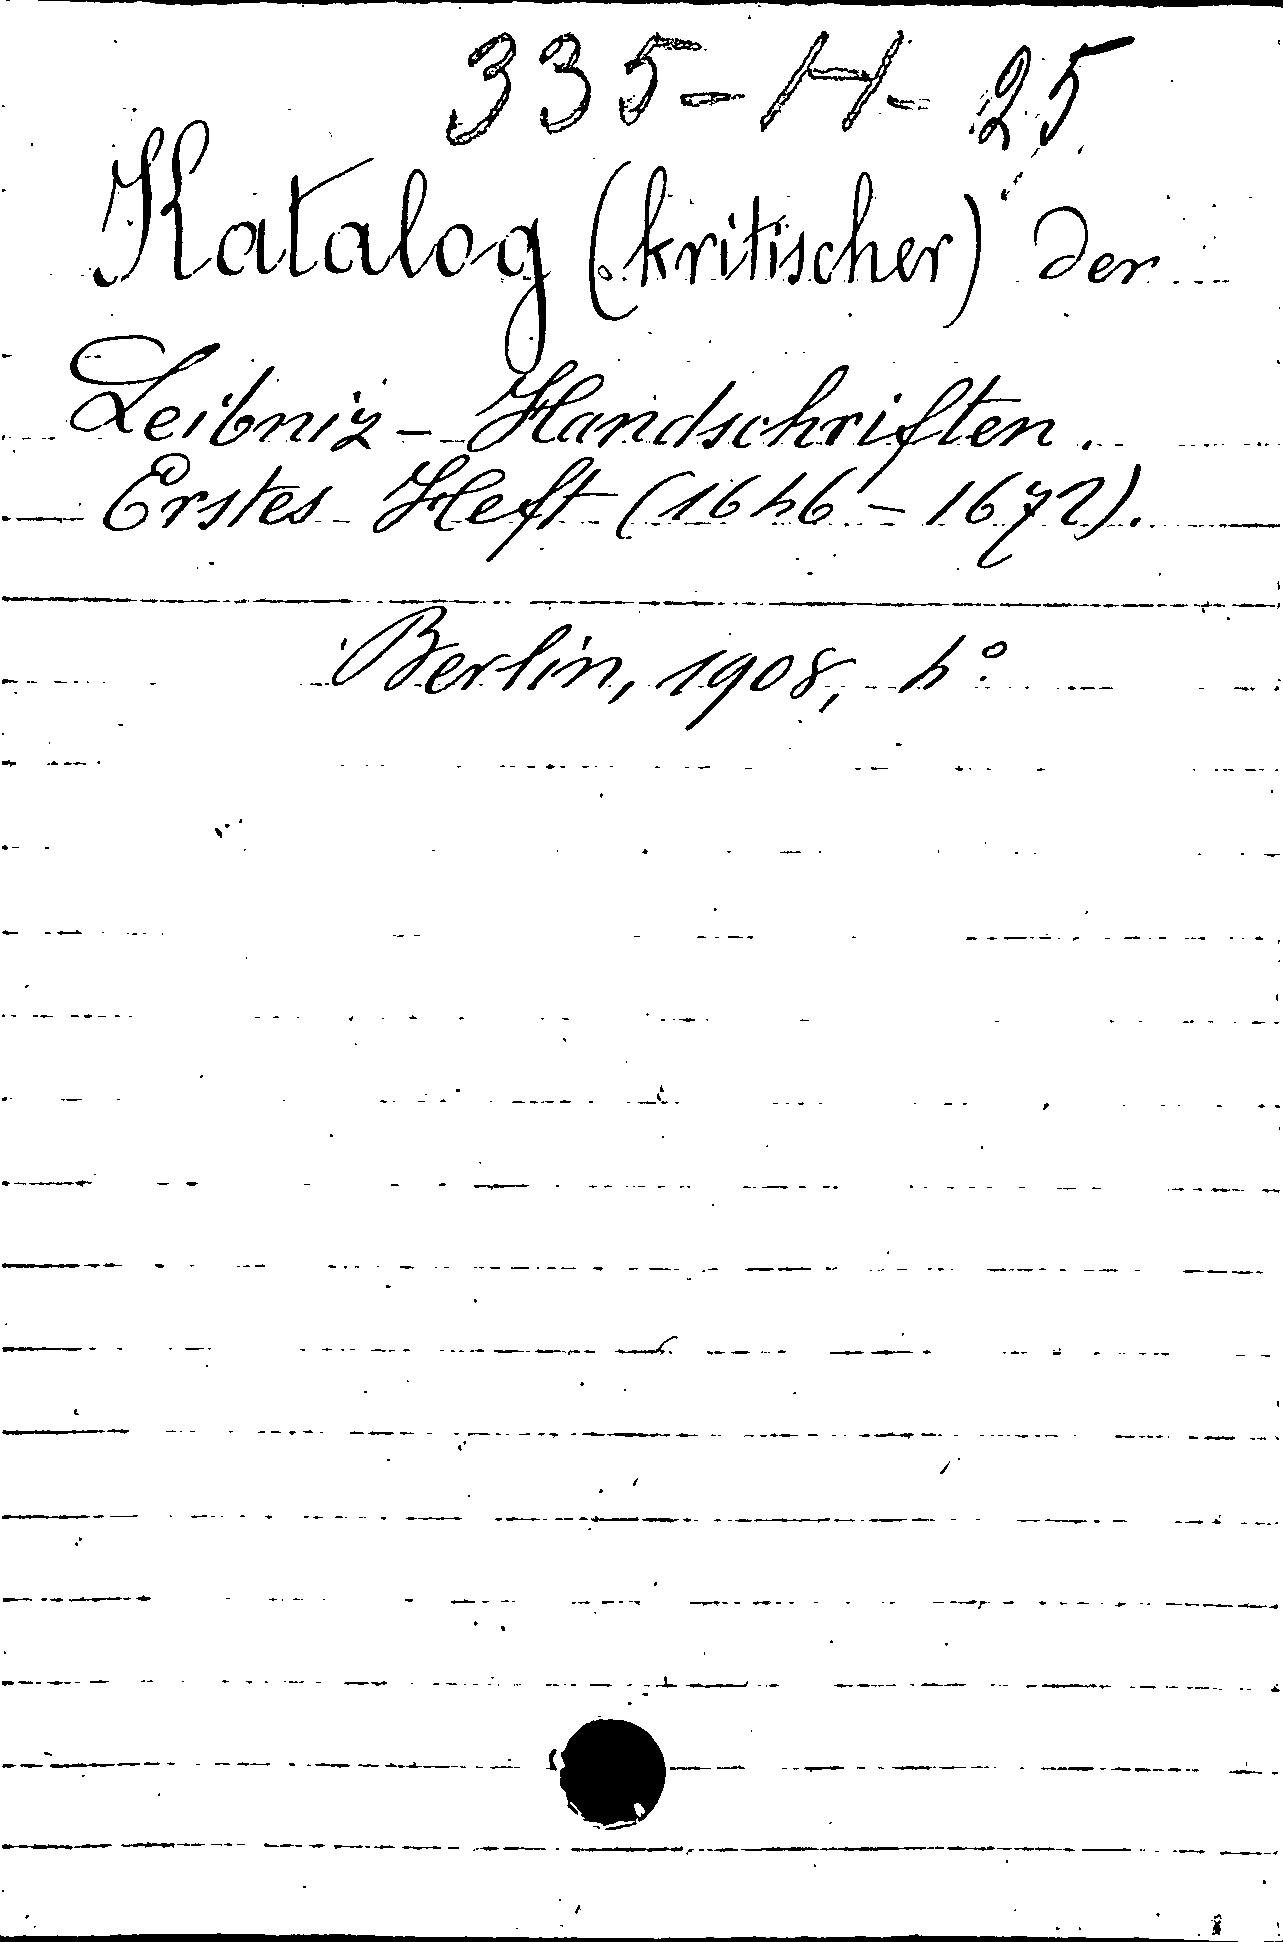 335-H-25
Katalog (kritischer) der
Leibniz-Handschriften.
Erstes Heft (1646-1672).
Berlin, 1908, 4°